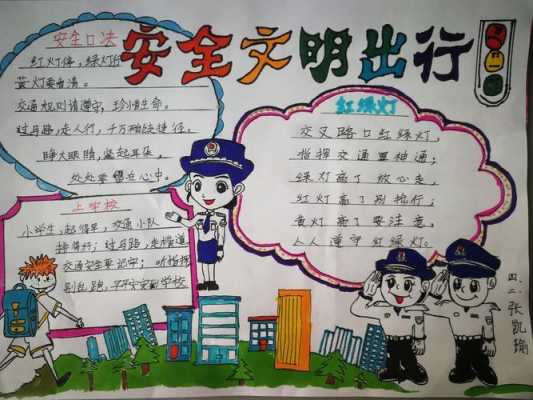 安全文明出行
安全口决
红灯停，绿灯行
黄灯要看清。
交通规则请遵守，珍惜生命。
过马路，走人行，千万别快捷径。
睁大眼睛，竖起耳朵，
处处要留在心中。
红绿灯
交叉路口红绿灯，
指挥交通显神通；
绿灯亮了放心走，
红灯亮了别抢行；
黄灯亮了要注意，
人人遵守红绿灯。
上学校
小学生，起得早，交通小队
排得好；过马路，走横道
交通安全要记牢；听指挥
别乱跑，平平安安到学校
四.二.张凯瑜